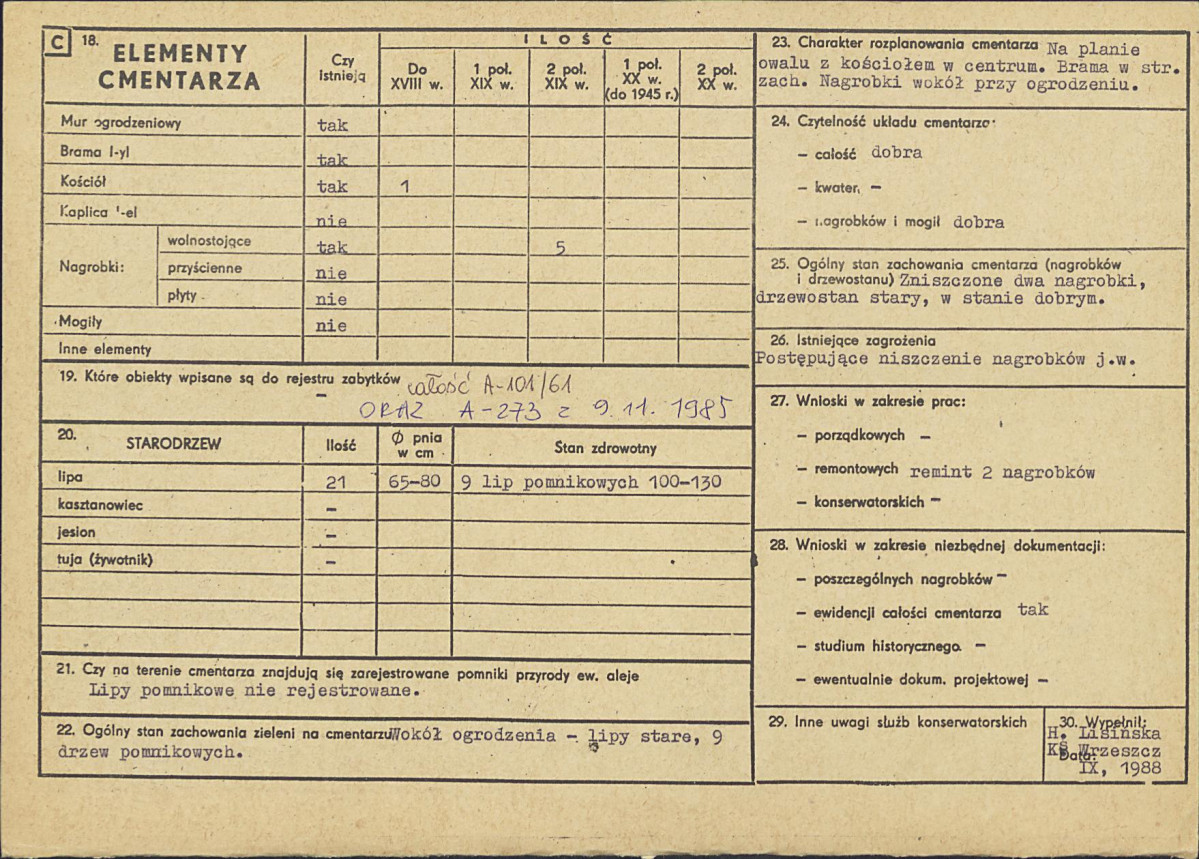 C 18. ELEMENTY CMENTARZA
Czy istnieją
ILOŚĆ
Do XVIII w.
1 poł. XIX w.
2 poł. XIX w.
1 poł. XX w. (do 1945 r.)
2 poł. XX w.
Mur ogrodzeniowy tak
Brama l-yl tak
Kościół tak 1
Kaplica '-el nie
Nagrobki:
wolnostojące tak 5
przyścienne nie
płyty nie
Mogiły nie
Inne elementy
19. Które obiekty wpisane są do rejestru zabytków całość A-101/61
–
ORAZ A-273 z 9.11.1985
20. STARODRZEW
Ilość
Ø pnia w cm
Stan zdrowotny
lipa 21 65-80 9 lip pomnikowych 100-130
kasztanowiec –
jesion –
tuja (żywotnik) –
21. Czy na terenie cmentarza znajdują się zarejestrowane pomniki przyrody ew. aleje
Lipy pomnikowe nie rejestrowane.
22. Ogólny stan zachowania zieleni na cmentarzu Wokół ogrodzenia – lipy stare, 9
drzew pomnikowych.
23. Charakter rozplanowania cmentarza Na planie
owalu z kościołem w centrum. Brama w str.
zach. Nagrobki wokół przy ogrodzeniu.
24. Czytelność układu cmentarza
– całość dobra
– kwater, –
– nagrobków i mogił dobra
25. Ogólny stan zachowania cmentarza (nagrobków
i drzewostanu) Zniszczone dwa nagrobki,
drzewostan stary, w stanie dobrym.
26. Istniejące zagrożenia
Postępujące niszczenie nagrobków j.w.
27. Wnioski w zakresie prac:
– porządkowych –
– remontowych remint 2 nagrobków
– konserwatorskich –
28. Wnioski w zakresie niezbędnej dokumentacji:
– poszczególnych nagrobków –
– ewidencji całości cmentarza tak
– studium historycznego. –
– ewentualnie dokum. projektowej –
29. Inne uwagi służb konserwatorskich
30. Wypełnił:
H. Lisińska
KŚ Wrzeszcz
Data:
IX, 1988